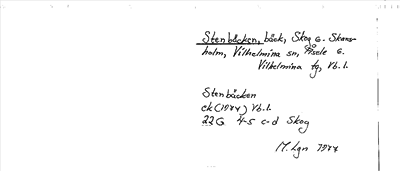 Stenbäcken, bäck, Skog o. Skans-
holm, Vilhelmina sn, Åsele o.
Vilhelmina tg, Vb. l.
Stenbäcken
ek (1944) Vb. l.
22G 4-5 c-d Skog
M. Lgn 1944